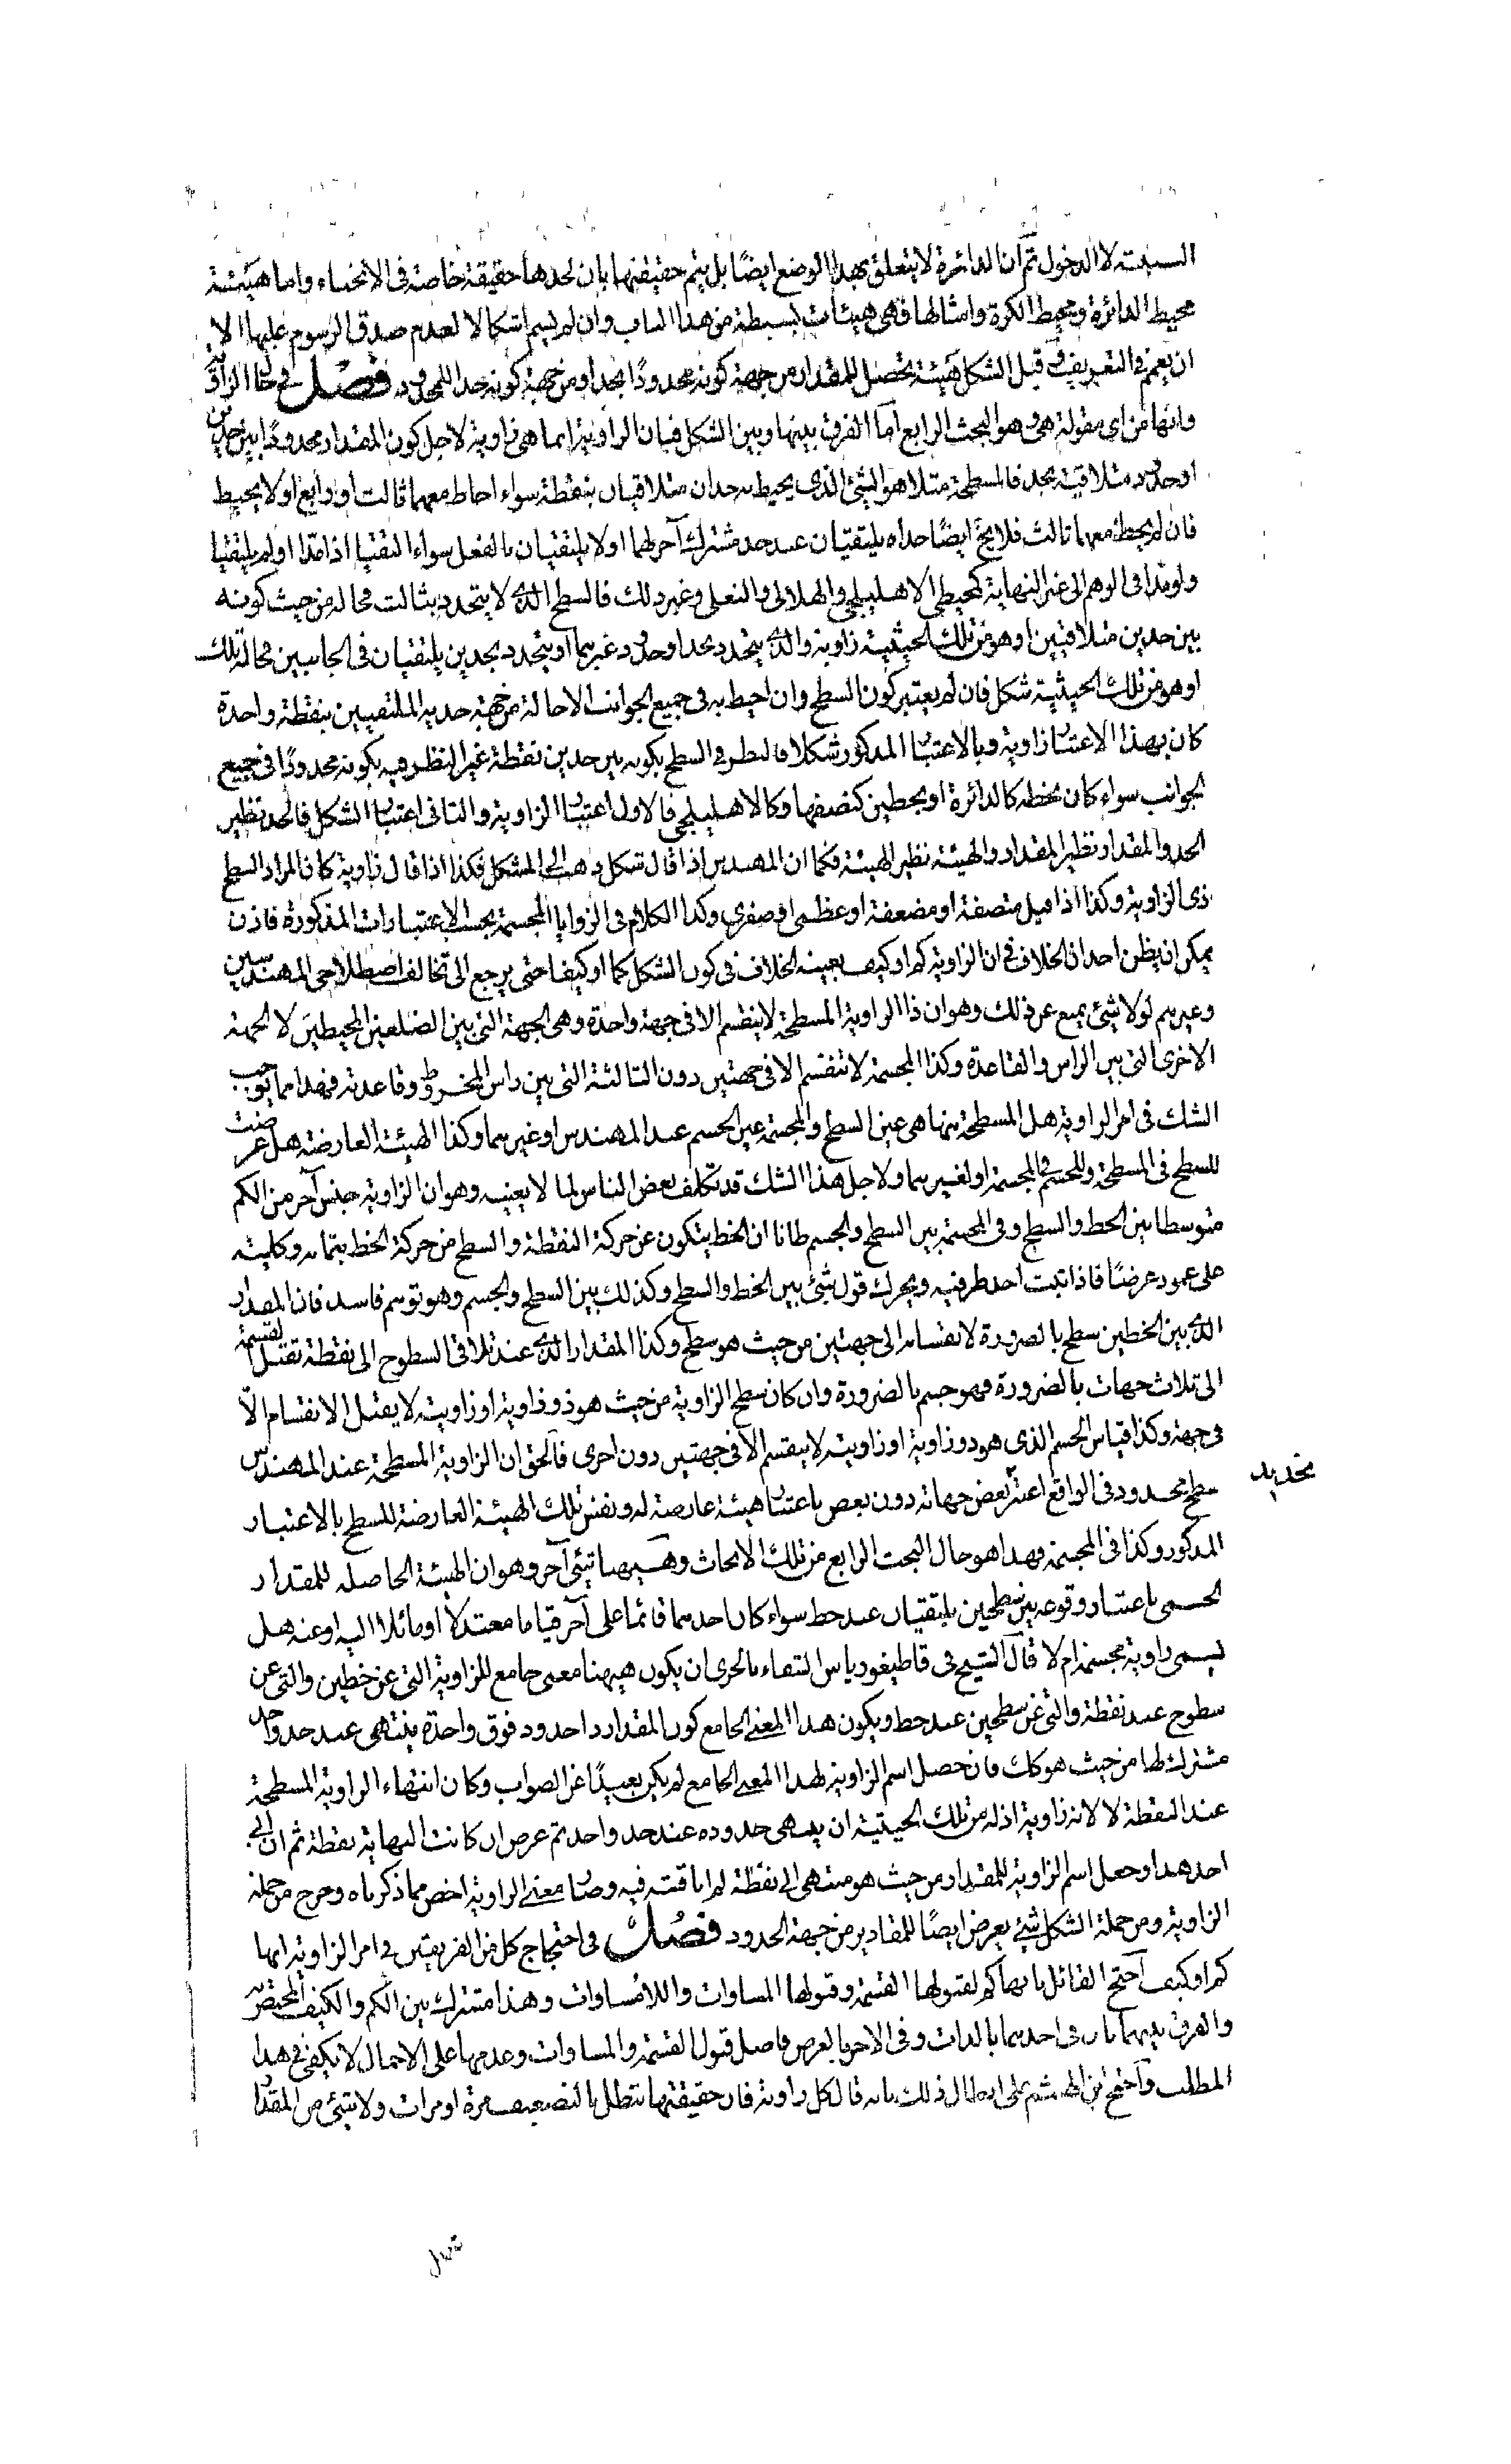 السببية لا الدخول ثم ان الدائرة لا يتعلق بهذا الوضع ايضًا بل يتم حقيقتها بان لحدها حقيقة خاصة فى الانحناء واما هيئة
محيط الدائرة ومحيط الكرة وامثالها فهى هيئات بسيطة من هذا الباب وان لم يسم اشكالا لعدم صدق الرسوم عليها الا
ان يعمم فى التعريف وقيل الشكل هيئة تحصل للمقدار من جهة كونه محدودًا بحد او من جهة كونه حدا للمحدود فصل فى حال الزاوية
وانها من اى مقولة هى وهو البحث الرابع اما الفرق بينها وبين الشكل فبان الزاوية انما هى زاوية لاجل كون المقدار محدودًا بين حدين
او حدود متلاقية بحد فالمسطحة مثلا هو الشئ الذى يحيط به حدان متلاقيان بنقطة سواء احاط معهما ثالث او رابع او لا يحيط
فان لم يحيط معهما ثالث فلا يخ ايضًا حداه يلتقيان عند حد مشترك آخر لهما او لا يلتقيان بالفعل سواء التقيا اذا مدّا او لم يلتقيا
ولو مدا فى الوهم الى غير النهاية كمحيطى الاهليلجى والهلالى والنعلى وغير ذلك فالسطح الذى لا يتحدد بثالث فحاله من حيث كونه
بين حدين متلاقيين او هو من تلك الحيثية زاوية والذى يتحدد بحد او حدود غيرهما او يتحدد بحدين يلتقيان فى الجانبين فحاله تلك
او هو من تلك الحيثية شكل فان لم يعتبر كون السطح وان احيط به فى جميع الجوانب الا حاله من جهة حديه الملتقيين بنقطة واحدة
كان بهذا الاعتبار زاوية وبالاعتبار المذكور شكلا فالنظر فى السطح بكونه بين حدين بنقطة غير النظر فيه بكونه محدودًا فى جميع
الجوانب سواء كان بخط كالدائرة او بخطين كنصفها وكالاهليلجى فالاول اعتبار الزاوية والثانى اعتبار الشكل فالحد نظير
الحد والمقدار نظير المقدار والهيئة نظير الهيئة فكما ان المهندس اذا قال شكل ذهب الى المشكل فكذا اذا قال زاوية كان المراد السطح
ذى الزاوية وكذا اذا قيل منصفة او مضعفة او عظمى او صغرى وكذا الكلام فى الزوايا المجسمة بحسب الاعتبارات المذكورة فاذن
يمكن ان يظن احد ان الخلاف فى ان الزاوية كم او كيف بعينه الخلاف فى كون الشكل كما او كيفا حتى يرجع الى تخالف اصطلاحى المهندسين
وغيرهم لولا شئ يمنع عن ذلك وهو ان ذا الزاوية المسطحة لا ينقسم الا فى جهة واحدة وهى الجهة التى بين الضلعين المحيطين لا الجهة
الاخرى التى بين الراس والقاعدة وكذا المجسمة لا تنقسم الا فى جهتين دون الثالثة التى بين راس المخروط وقاعدته فهذا مما يوجب
الشك فى امر الزاوية هل المسطحة منها هى عين السطح والمجسمة عين الجسم عند المهندس او غيرهما وكذا الهيئة العارضة هل عرضت
للسطح فى المسطحة وللجسم فى المجسمة او لغيرهما ولاجل هذا الشك قد تكلف بعض الناس لما لا يعنيه وهو ان الزاوية جنس آخر من الكم
متوسطا بين الخط والسطح وفى المجسمة بين السطح والجسم ظانا ان الخط يتكون عن حركة النقطة والسطح من حركة الخط بتمامه وكليته
على عمود عرضًا فاذا ثبت احد طرفيه ويحرك قول شئ بين الخط والسطح وكذلك بين السطح والجسم وهو توهم فاسد فان المقدار
الذى بين الخطين سطح بالضرورة لانقسامه الى جهتين من حيث هو سطح وكذا المقدار الذى عند تلاقى السطوح الى نقطة تقبل القسمة
الى ثلاث جهات بالضرورة فهو جسم بالضرورة وان كان سطح الزاوية من حيث هو ذو زاوية او زاوية لا يقبل الانقسام الّا
فى جهة وكذا قياس الجسم الذى هو ذو زاوية او زاوية لا ينقسم الا فى جهتين دون اخرى فالحق ان الزاوية المسطحة عند المهندس
سطح محدود فى الواقع اعتبر بعض جهاته دون بعض باعتبار هيئة عارضة له ونفس تلك الهيئة العارضة للسطح بالاعتبار
المذكور وكذا فى المجسمة فهذا هو حال البحث الرابع من تلك الابحاث وههنا شئ آخر وهو ان الهيئة الحاصلة للمقدار
الجسمى باعتبار وقوعه بين سطحين يلتقيان عند خط سواء كان احدهما قائما على آخر قياما معتدلا او مائلا اليه او عنه هل
يسمى زاوية مجسمة ام لا قال الشيخ فى قاطيغورياس الشفاء بالحرى ان يكون ههنا معنى جامع للزاوية التى عن خطين والتى عن
سطوح عند نقطة والتى عن سطحين عند خط ويكون هذا المعنى الجامع كون المقدار ذا حدود فوق واحدة ينتهى عند حد واحد
مشترك لها من حيث هو كك فان حصل اسم الزاوية لهذا المعنى الجامع لم يكن بعيدًا عن الصواب وكان انتهاء الزاوية المسطحة
عند النقطة لا لانه زاوية اذ له من تلك الحيثية ان ينتهى حدوده عند حد واحد ثم عرض ان كانت النهاية نقطة ثم ان ابى
احد هذا وجعل اسم الزاوية للمقدار من حيث هو منتهى الى نقطة لم اناقشه فيه وصار معنى الزاوية اخص مما ذكرناه وخرج من جملة
الزاوية ومن جملة الشكل شئ يعرض ايضًا للمقادير من جهة الحدود فصل فى احتجاج كل من الفريقين فى امر الزاوية انها
كم او كيف احتج القائل بانها كم لقبولها القسمة وقبولها المساوات واللامساوات وهذا مشترك بين الكم والكيف المختص به
والفرق بينهما بان فى احدهما بالذات وفى الاخر بالعرض فاصل قبول القسمة والمساوات وعدمها على الاجمال لا يكفى فى هذا
المطلب واحتج ابن الهيثم على ابطال ذلك بانه قال كل زاوية فان حقيقتها تبطل بالتضعيف مرة او مرات ولا شئ من المقدار